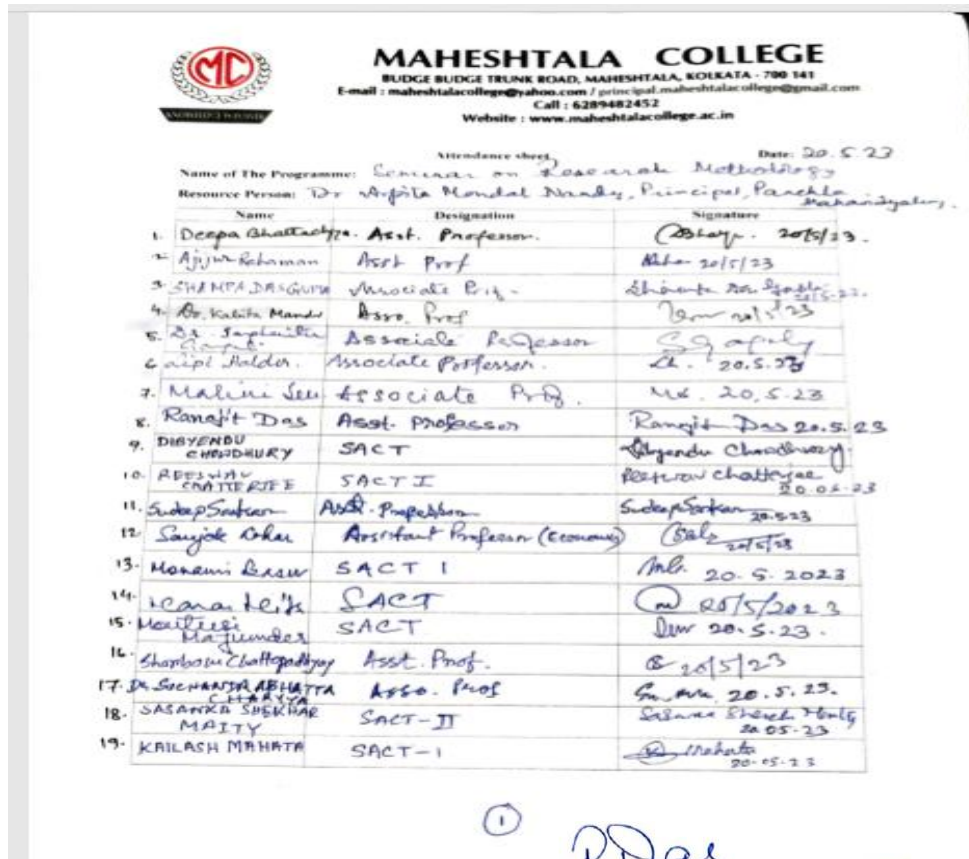 MC
KNOWLEDGE IS POWER
MAHESHTALA COLLEGE
BUDGE BUDGE TRUNK ROAD, MAHESHTALA, KOLKATA - 700 141
E-mail : maheshtalacollege@yahoo.com / principal.maheshtalacollege@gmail.com
Call : 6289482452
Website : www.maheshtalacollege.ac.in
Attendance sheet Date: 20.5.23
Name of The Programme: Seminar on Research Methodology
Resource Person: Dr Arpita Mondal Nandy, Principal, Panchla Mahavidyalaya,
Name Designation Signature
1. Deepa Bhattachrya. Asst. Professor. 20/5/23.
2 Ajijur Rahaman Asst Prof 20/5/23
3. SHAMPA DASGUPTA Associate Prof. Shampa Das Gupta 20/5-23.
4. Dr. Kabita Mandal Asso. Prof 20/5/23
5. Dr. Associate Professor
6 Lipi Halder. Associate Professor. 20.5.23
7. Malini Sen Associate Prof. MS. 20.5.23
8. Ranajit Das Asst. Professor Ranajit Das 20.5.23
9. DIBYENDU CHOWDHURY SACT Dibyendu Chowdhury.
10. REESHAV CHATTERJEE SACT I Reeshav Chatterjee 20.05.23
11. Sudeep Sarkar Asst. Professor Sudeep Sarkar 20.5.23
12 Assistant Professor (Economics) 20/5/23
13. Monami Basu SACT 1 20.5.2023
14. SACT 20/5/2023
15. Moitreyi Majumder SACT 20.5.23.
16. Shambhavi Chattopadhyay Asst. Prof. 20/5/23
17. Dr. SUCHANDRA BHATTACHARYYA Asso. Prof 20.5.23.
18. SASANKA SHEKHAR MAITY SACT-II 20.05-23
19. KAILASH MAHATA SACT-1 Mahata 20-05-23
1
RDas